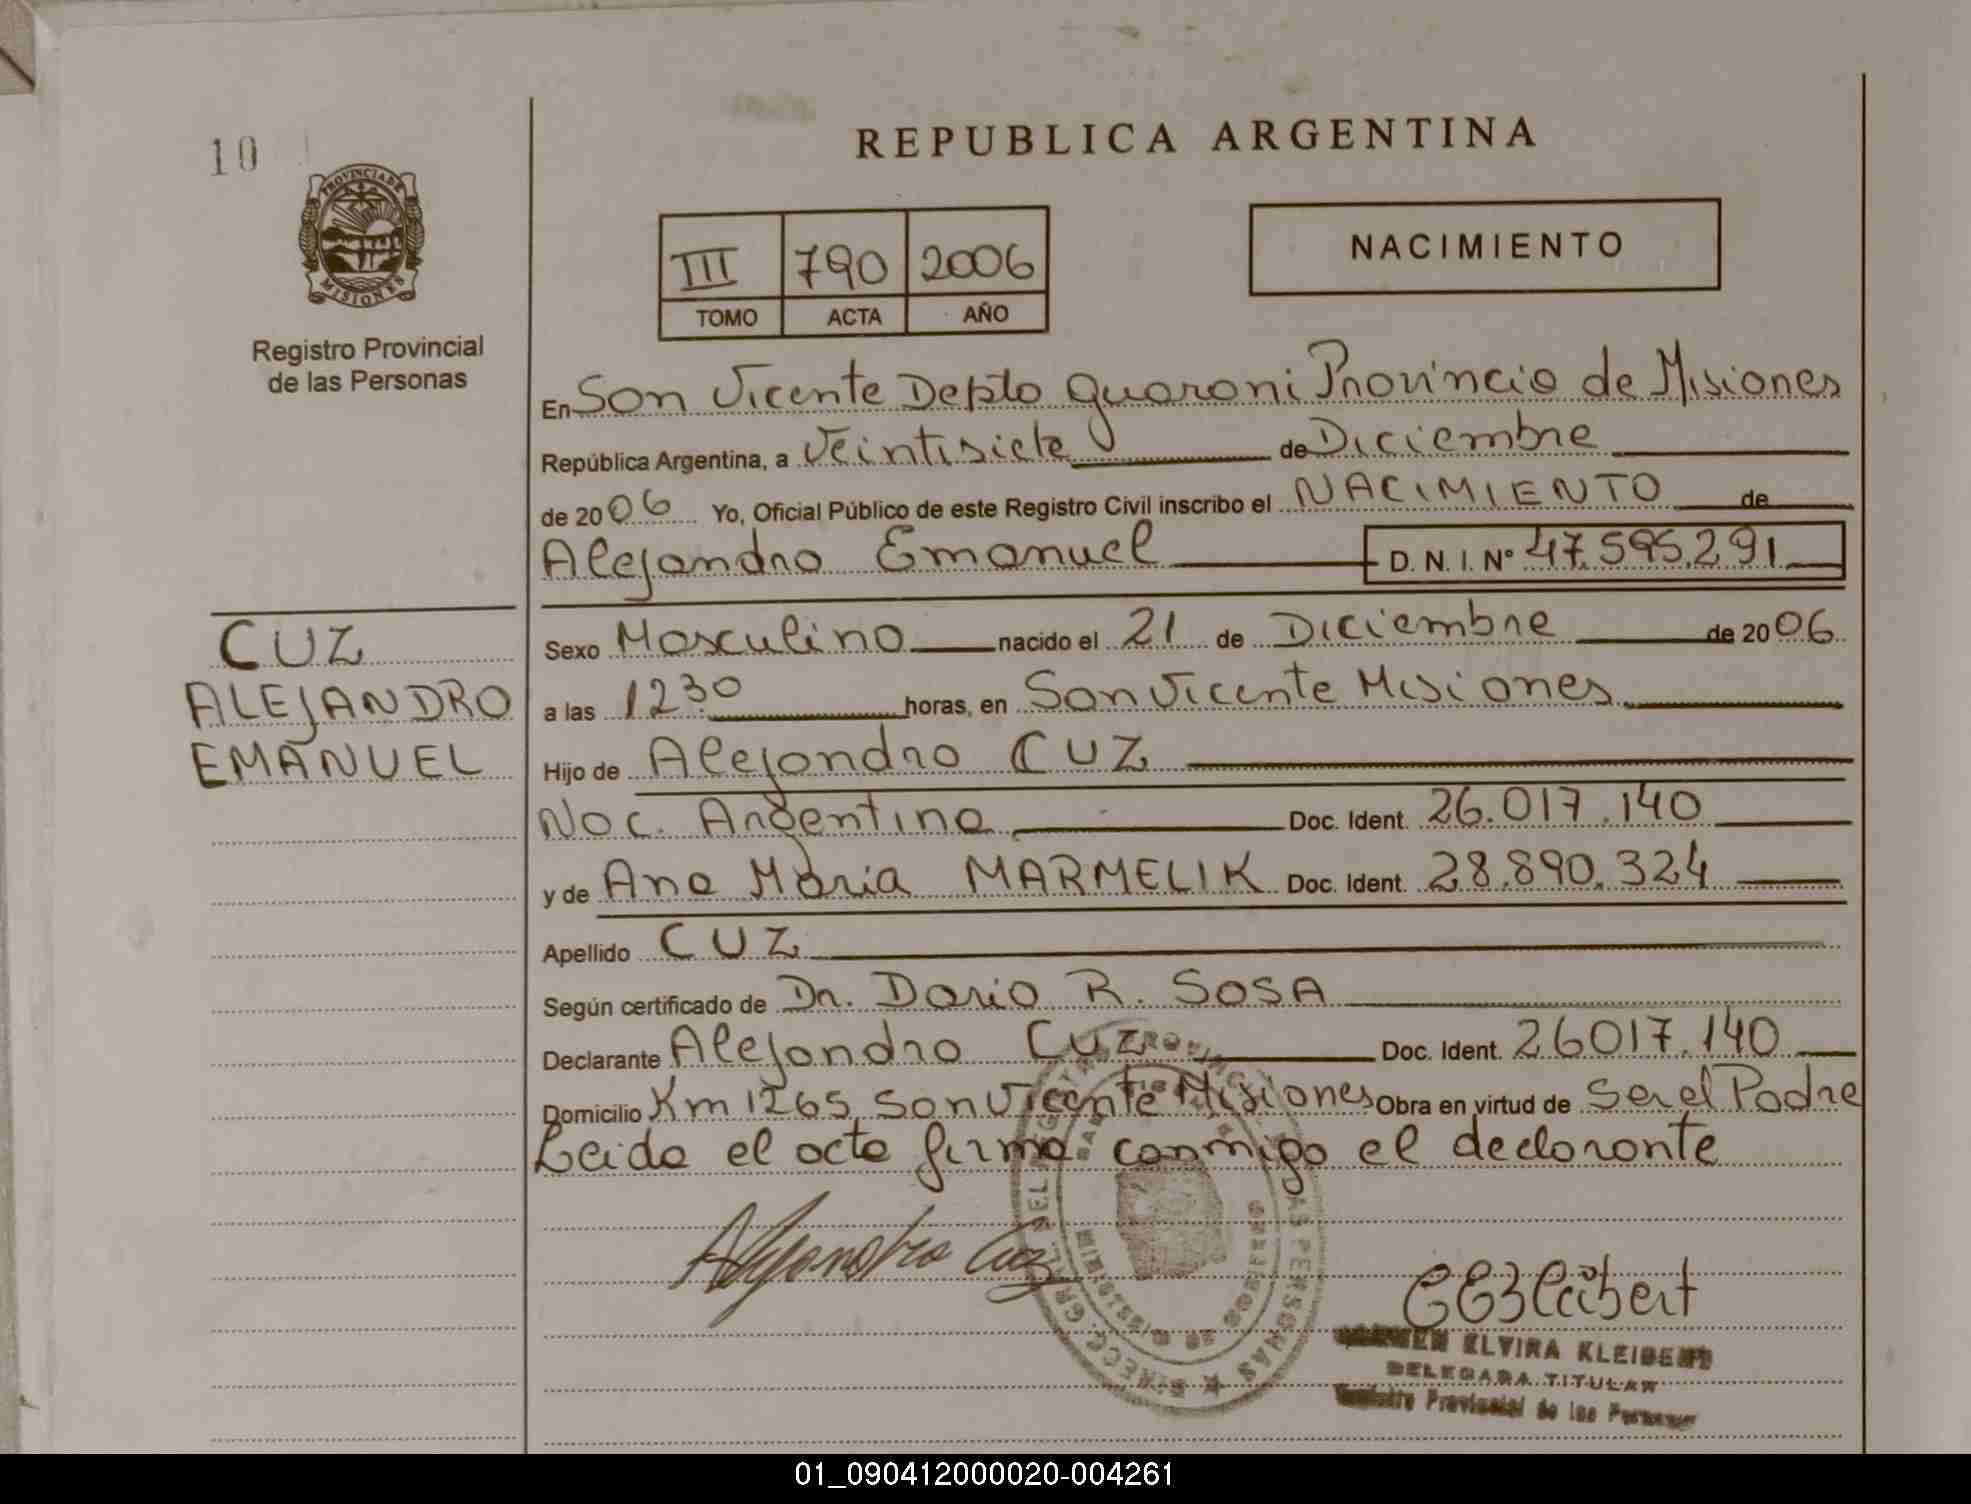 10
REPUBLICA ARGENTINA
PROVINCIA DE
MISIONES
Registro Provincial
de las Personas
III 790 2006
TOMO ACTA AÑO
NACIMIENTO
En San Vicente Depto Guarani Provincia de Misiones
República Argentina, a Veintisiete de Diciembre
de 2006 Yo, Oficial Público de este Registro Civil inscribo el NACIMIENTO de
Alejandro Emanuel D. N. I. Nº 47.595.291
CUZ
ALEJANDRO
EMANUEL
Sexo Masculino nacido el 21 de Diciembre de 2006
a las 1230 horas, en San Vicente Misiones
Hijo de Alejandro CUZ
Nac. Argentina Doc. Ident. 26.017.140
y de Ana Maria MARMELIK Doc. Ident. 28.890.324
Apellido CUZ
Según certificado de Dr. Dario R. SOSA
Declarante Alejandro CUZ Doc. Ident. 26017.140
Domicilio Km 1265 San Vicente Misiones Obra en virtud de Ser el Padre
Leida el acta firma conmigo el declarante
Alejandro Cuz
ELVIRA KLEIBERT
DELEGADA TITULAR
Registro Provincial de las Personas
01_090412000020-004261